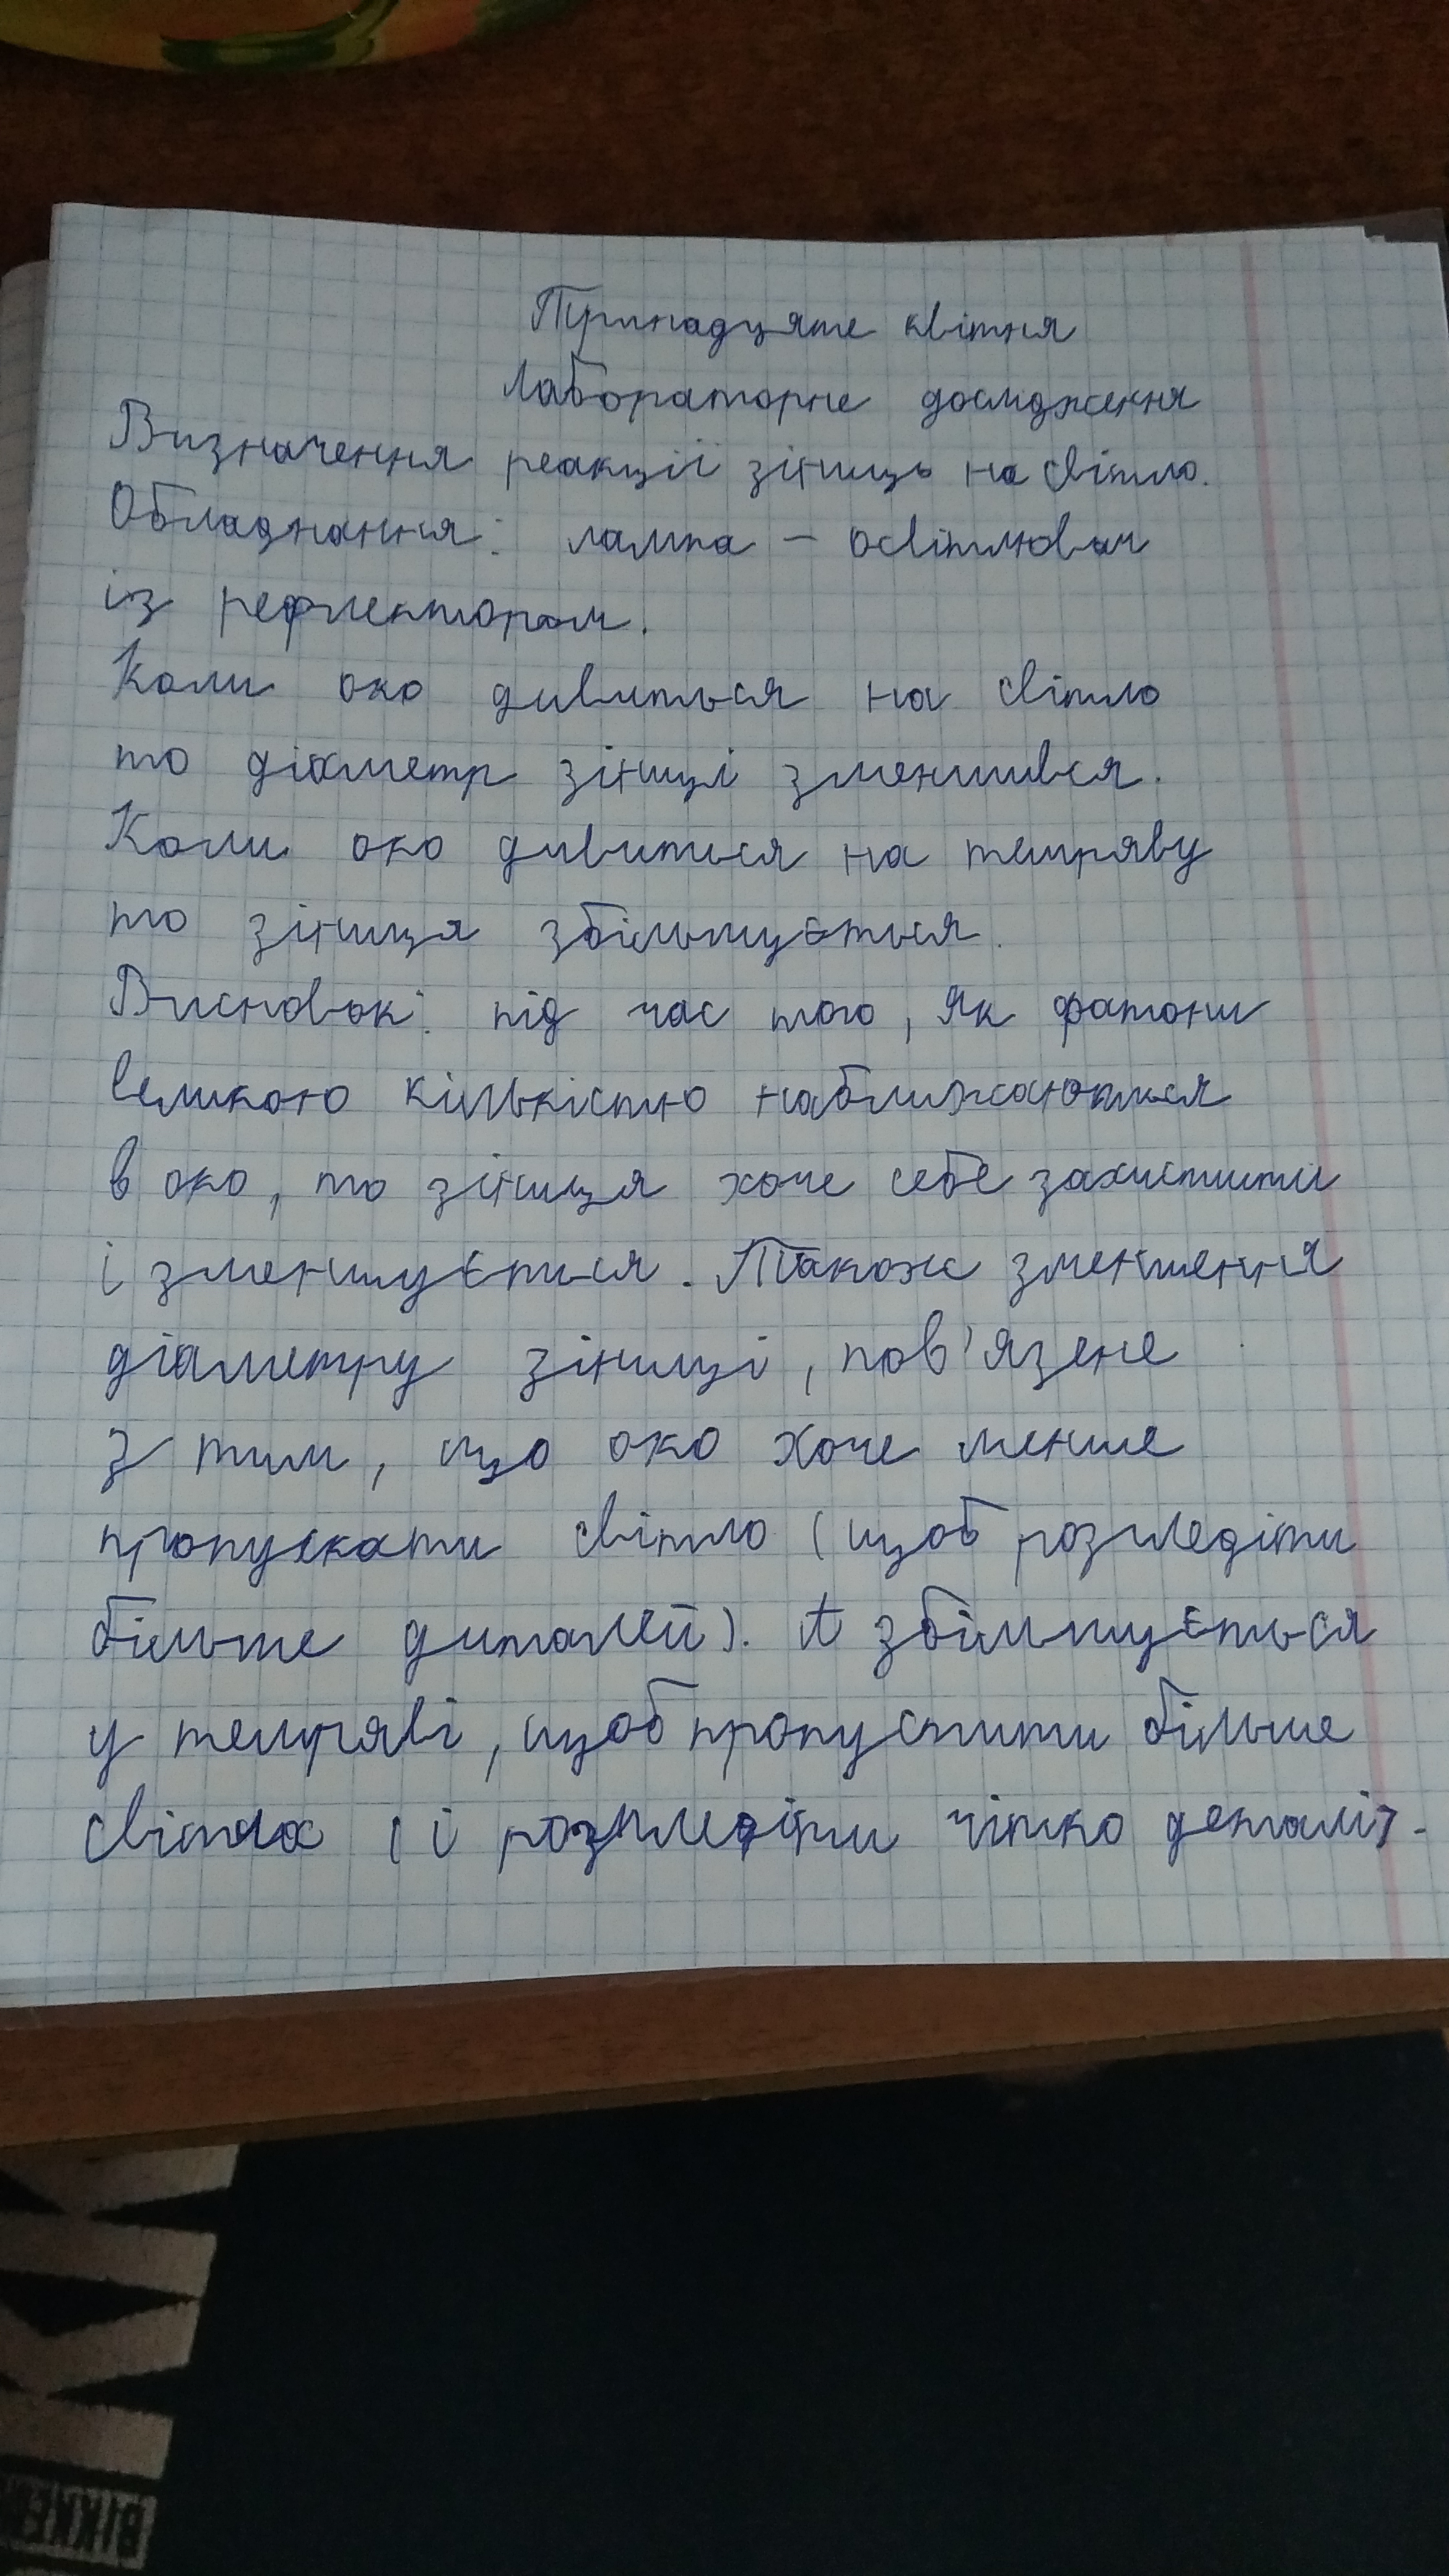 Тринадцяте квітня
Лабораторне дослідження
Визначення реакції зіниць на світло.
Обладнання: лампа - освітлювач
із рефлектором.
Коли око дивиться на світло
то діаметр зіниці зменшився.
Коли око дивиться на темряву
то зіниця збільшується.
Висновок: під час того, як фатони
великою кількістю наближаються
в око, то зіниця хоче себе захистити
і зменшується. Також зменшення
діаметру зіниці, пов'язене
з тим, що око хоче менше
пропускати світло (щоб розгледіти
більше диталей). А збільшується
у темряві, щоб пропустити більше
світла (і розгледіти чітко деталі).